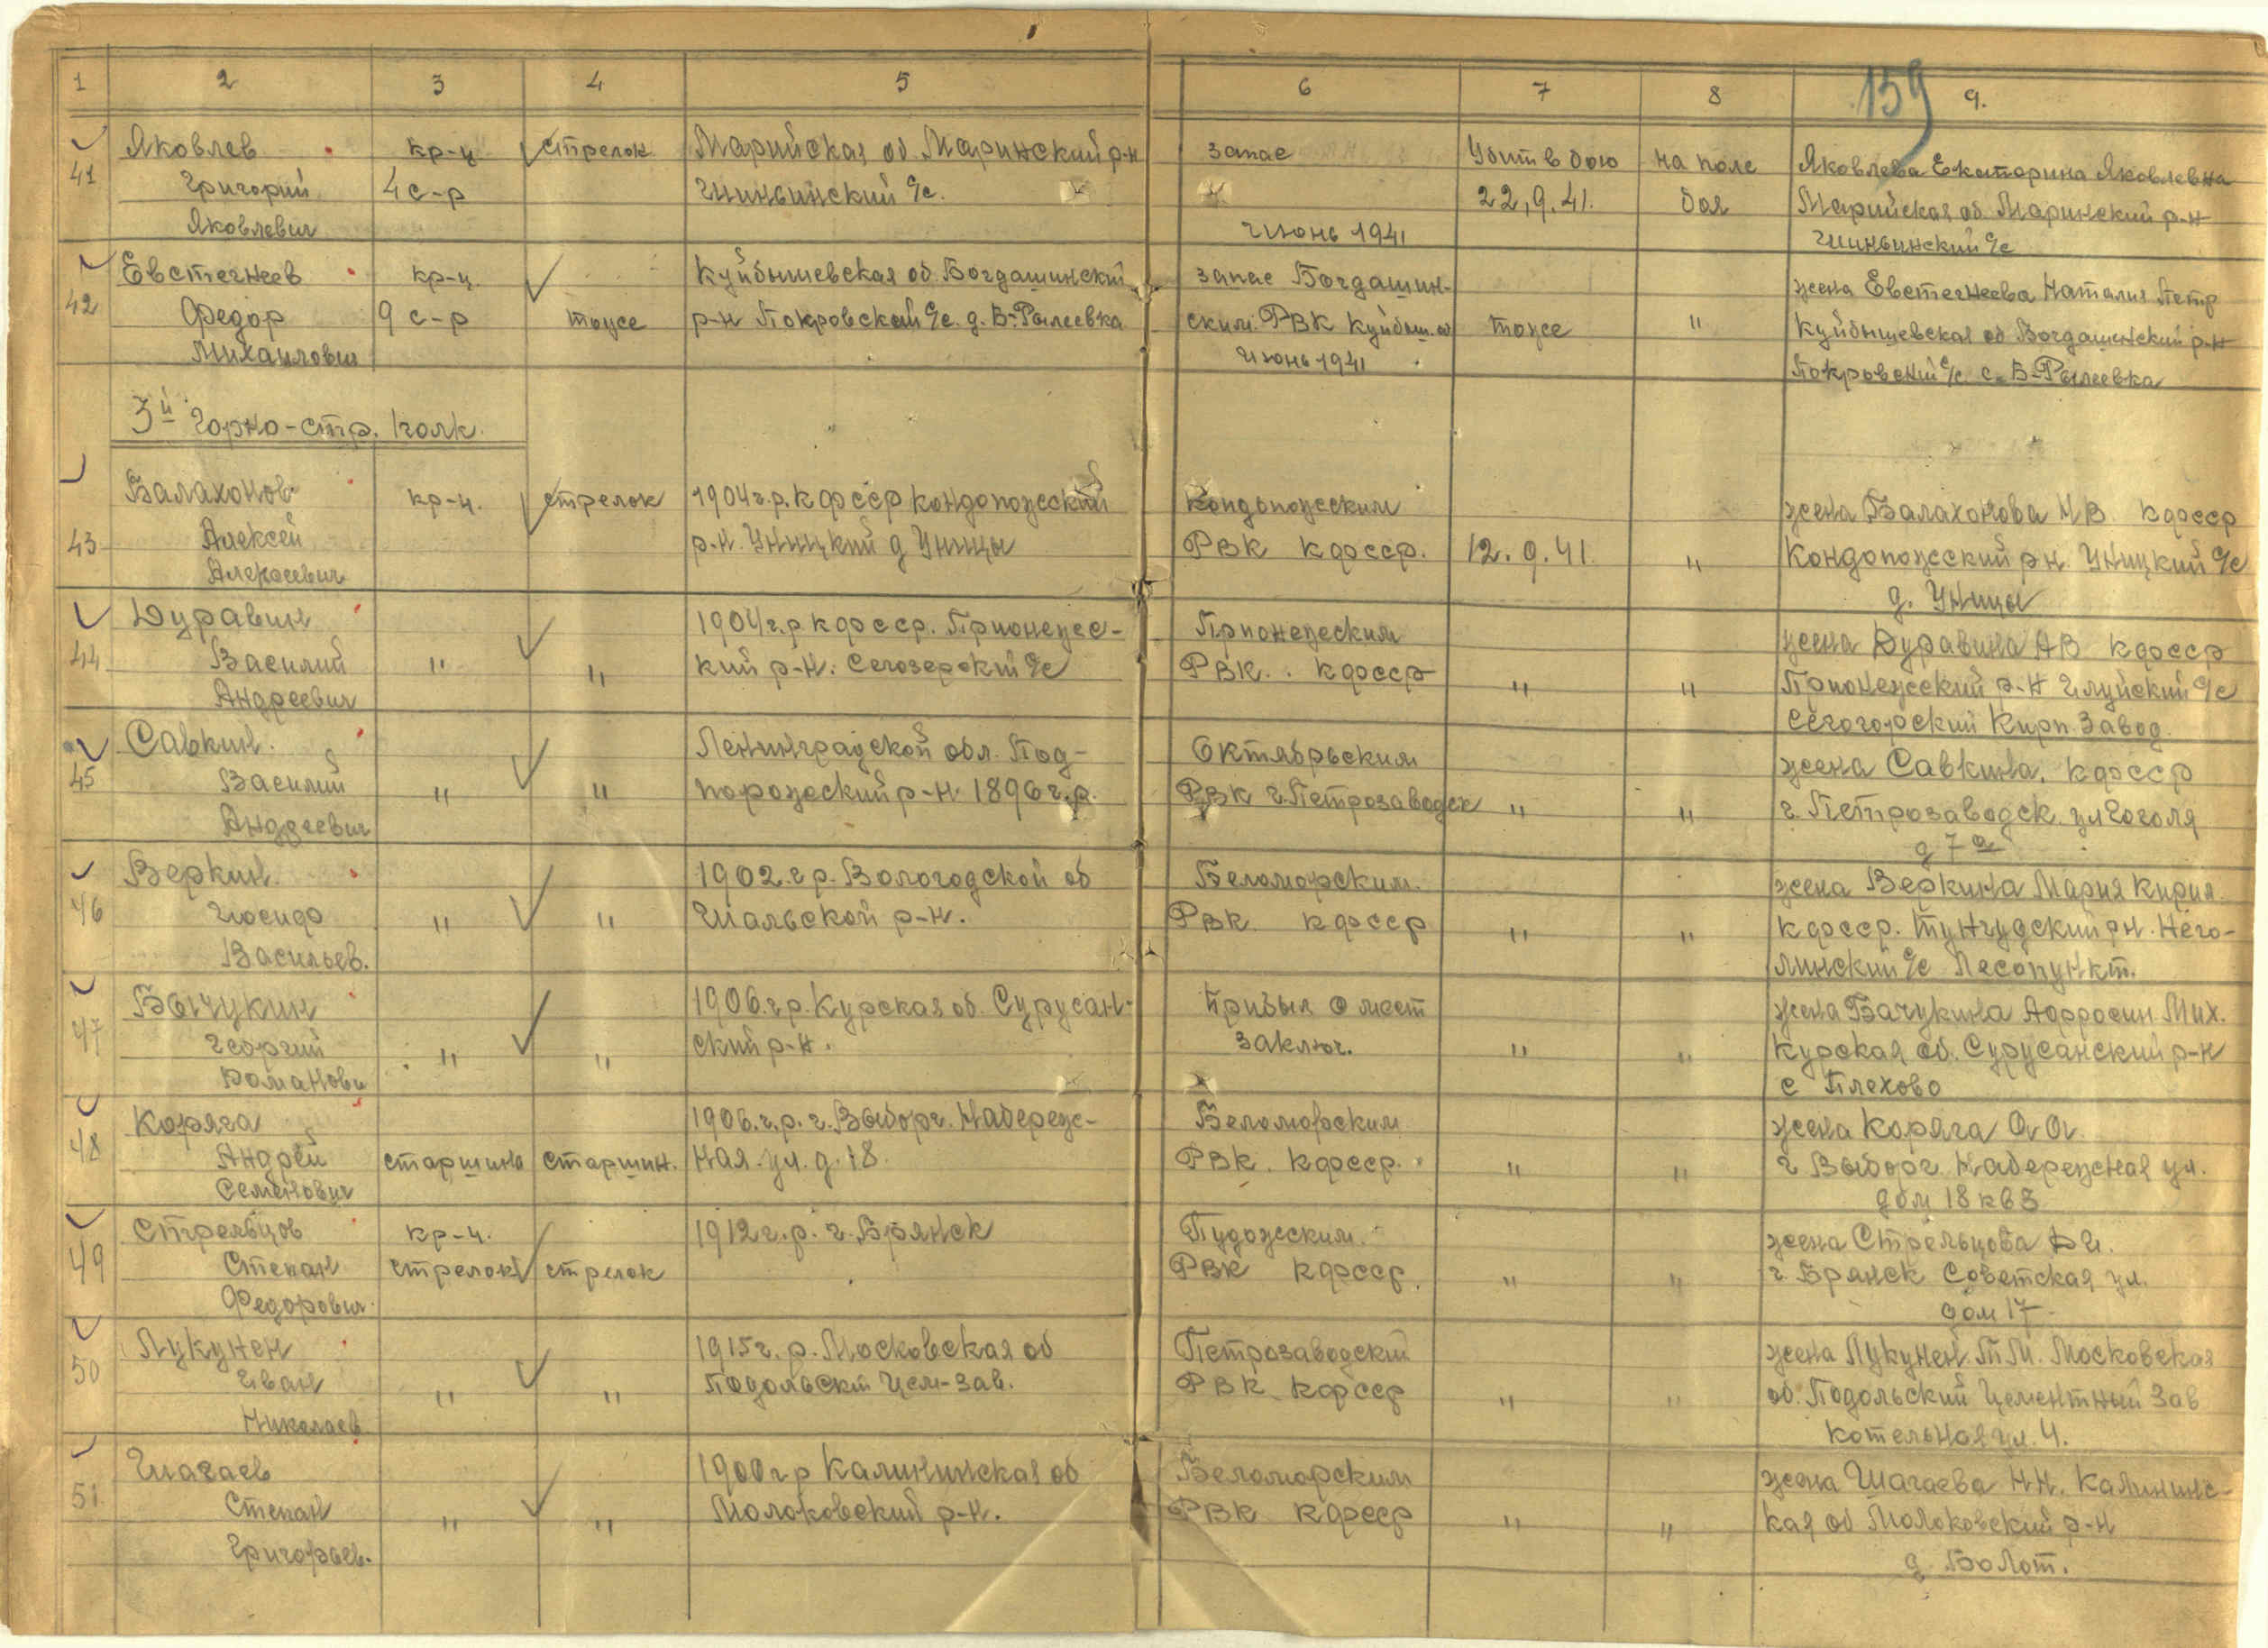 159
1 2 3 4 5 6 7 8 9.
41 Яковлев кр-ц стрелок Марийская об Маринский р-н запас Убит в бою на поле Яковлева Екаторина Яковлевна
Григорий 4 с-р Шиньшинский с/с. 22,9.41. боя Марийская об Маринский р-н
Яковлевич Июнь 1941 Шиньшинский с/с
42 Евстегнеев кр-ц. Куйбышевская об. Богдашинский запас Богдашин- жена Евстегнеева Наталия Петр
Федор 9 с-р тоже р-н Покровский с/с. д. В-Рылеевка ским РВК Куйбыш. об тоже " Куйбышевская об Богдашинский р-н
Михаилович Июнь 1941 Покровский с/с. с. В-Рылеевка
3й Горно-стр. полк.
43 Балахонов кр-ц. стрелок 1904г.р. КФССР Кондопожский Кондопожским жена Балахонова Н В. КФССР
Алексей р-н. Уницкий д Уницы РВК КФССР. 12.9.41. " Кондопожский р н. Уницкий с/с
Алексеевич д. Уницы
44 Дуравин 1904г.р КФССР. Прионежс- Прионежским жена Дуравина А В КФССР
Василий " " кий р-н. Сегозерский с/с РВК. КФССР " " Прионежский р-н Шуйский с/с
Андреевич Сегогорский Кирп. Завод.
45 Савкин. Ленинградской обл. Под- Октябрьским жена Савкина. КФССР
Василий " " порожский р-н. 1896 г.р. РВК г. Петрозаводск " " г. Петрозаводск. ул Гоголя
Андреевич д 7 а
46 Веркин. 1902. г р. Вологодской об Беломорским жена Веркина Мария Кирил.
" " Шальской р-н. РВК КФССР " " КФССР. Тунгудский р н. Него-
Васильев. линский с/с Лесопункт.
47 Бачукин 1906. г р. Курская об. Сурусан- Прибыл с мест жена Бачукина Афросин. Мих.
Георгий " " ский р-н. Заключ. " " Курская об. Сурусанский р-н
Романови с Плехово
48 Коряга 1906. г.р. г. Выборг. Набереж- Беломорским жена Коряга О. О.
Андрей старшина старшин. ная. ул. д. 18. РВК. КФССР. " " г Выборг. Набережная ул.
Семенович дом 18 кв 3
49 Стрельцов кр-ц. 1912 г. р. г. Брянск Пудожским. жена Стрельцова
Степан стрелок стрелок РВК КФССР. " " г. Брянск Советская ул.
Федорович дом 17.
50 Лукунен 1915 г. р. Московская об Петрозаводский жена Лукунен. Т М. Московская
Иван " " Подольский Цем-зав. РВК КФССР " " об. Подольский Цементный Зав
Николаев Котельная ул. 4.
51 Шагаев 1900 г р Калининская об Беломорским жена Шагаева Н Н. Калининс-
Степан " " Молоковский р-н. РВК КФССР " " кая об Молоковский р-н
Григорьев. д. Болот.